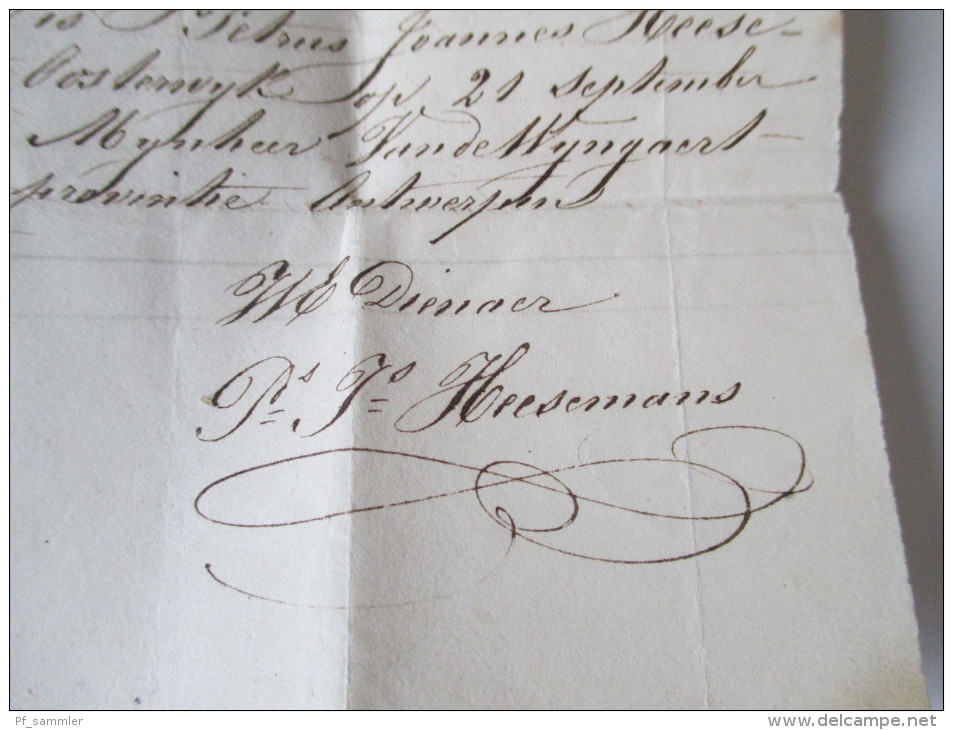 is Ps Petrus Joannes Heese-
Oosterwyk op 21 september
Mynheer Van de Wyngaert
provintie Antwerpen
WE Dienaer
Ps Js Heesemans
Pf_sammler
www.delcampe.net